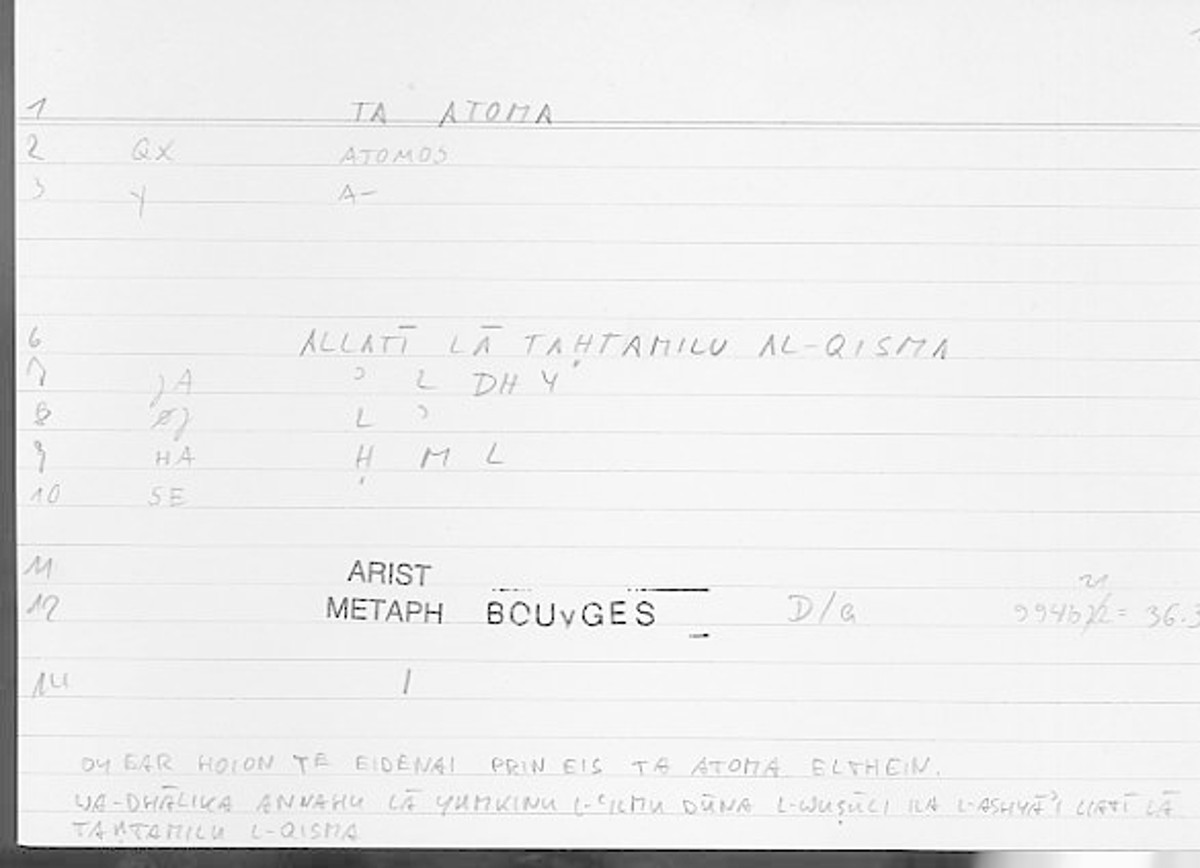 1 TA ATOMA
2 QX ATOMOS
3 γ A-
6 ALLATĪ LĀ TAḤTAMILU AL-QISMA
7 JA ʾ L DH Y
8 ØJ L ʾ
9 HA Ḥ M L
10 SE
11 ARIST
12 METAPH BOUyGES D/a 994b 21 = 36.3
14 1
OY GAR HOION TE EIDENAI PRIN EIS TA ATOMA ELTHEIN.
WA-DHĀLIKA ANNAHU LĀ YUMKINU L-ʿILMU DŪNA L-WUṢŪLI ILA L-ASHYĀʾI LLATĪ LĀ
TAḤTAMILU L-QISMA